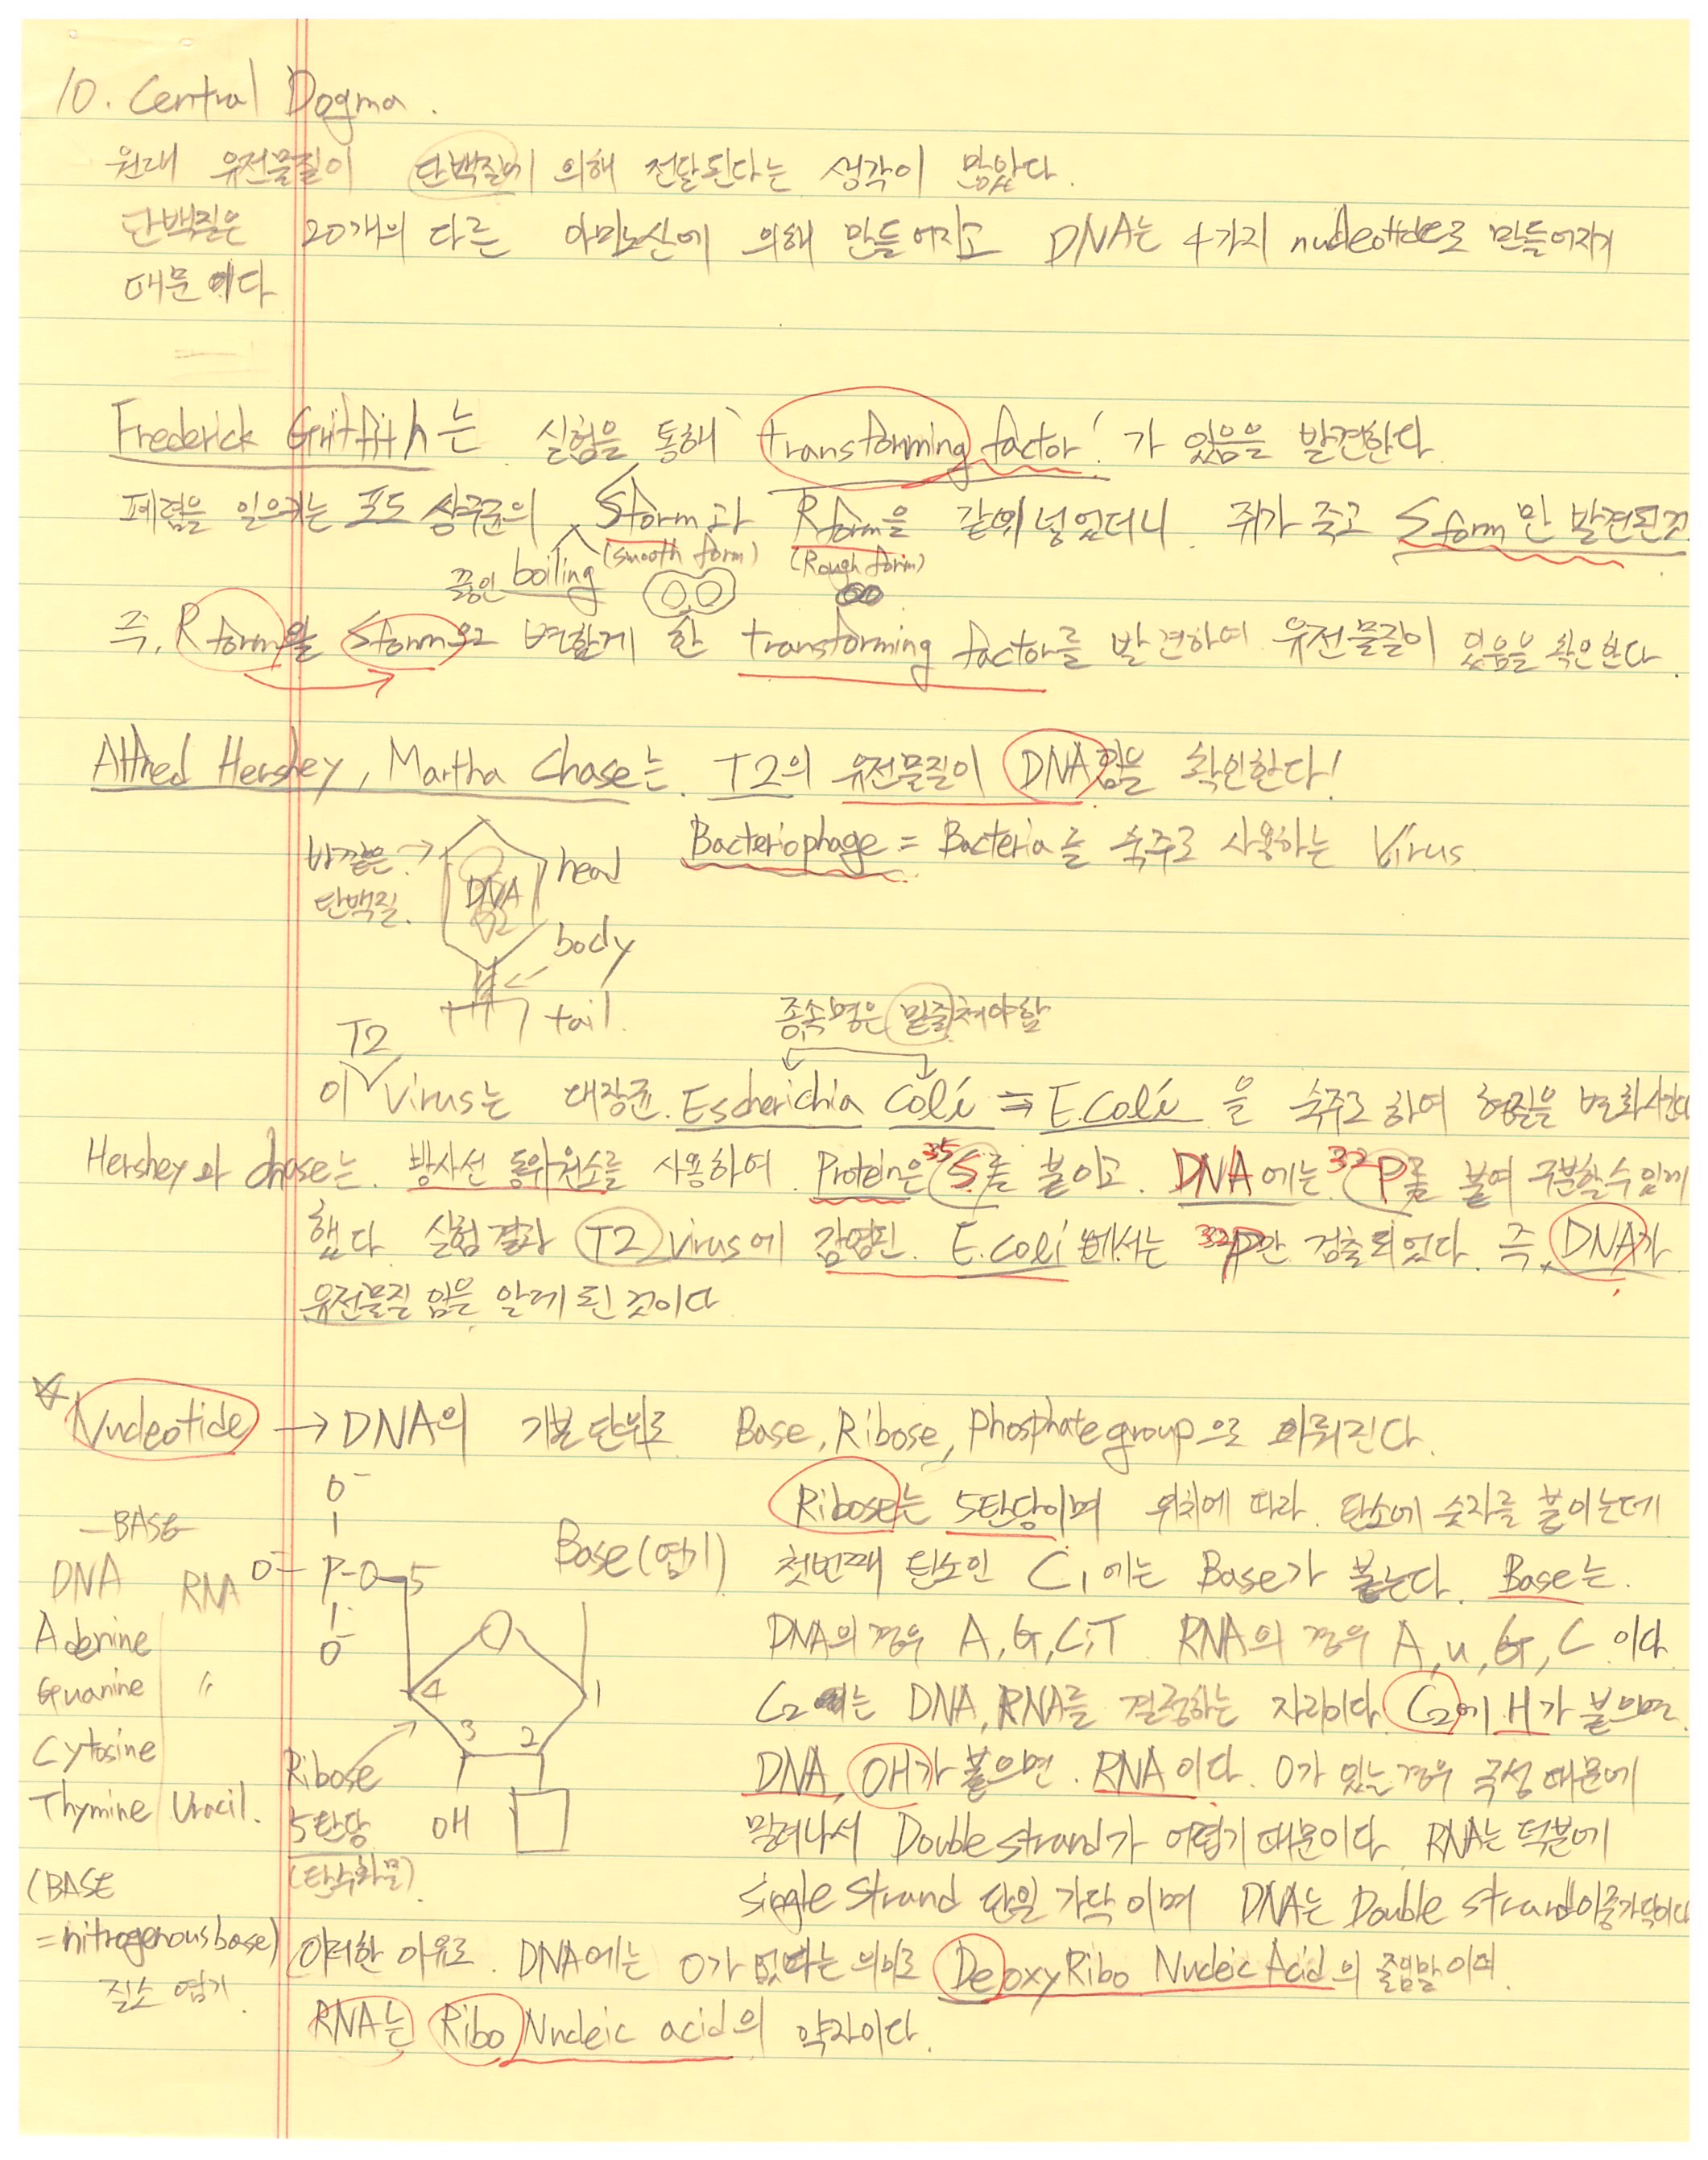 10. Central Dogma.
원래 유전물질이 단백질에 의해 전달된다는 생각이 많았다.
단백질은 20개의 다른 아미노산에 의해 만들어지고 DNA는 4가지 nucleotide로 만들어지기
때문이다
Frederick Griffith는 실험을 통해 'transforming factor'가 있음을 발견한다.
폐렴을 일으키는 포도상구균의 S form과 R form을 같이 넣었더니 쥐가 죽고 S form만 발견된것
끓인 boiling (smooth form) (Rough form)
즉, R form을 S form으로 변환게 한 transforming factor를 발견하여 유전물질이 있음을 확인한다.
Alfred Hershey, Martha Chase는 T2의 유전물질이 DNA임을 확인한다!
바깥은 → head
단백질. DNA
Bacteriophage = Bacteria를 숙주로 사용하는 Virus
body
tail.
종속명은 밑줄쳐야함
T2
이 Virus는 대장균 Escherichia Coli ⇒ E.Coli 을 숙주로 하여 형질을 변화시킨다
Hershey와 chase는 방사선 동위원소를 사용하여 Protein은 35S를 붙이고 DNA에는 32P를 붙여 구분할수있게
했다. 실험결과 T2 virus에 감염된 E.coli에서는 32P만 검출되었다. 즉, DNA가
유전물질임을 알게 된 것이다
☆ Nucleotide → DNA의 기본단위로 Base, Ribose, Phosphate group으로 이뤄진다.
-BASE-
DNA RNA
Adenine
Guanine 〃
Cytosine
Thymine Uracil.
(BASE
=nitrogenous base)
질소 염기
O⁻
O⁻-P-O-5
O⁻
Base(염기)
O
4 1
3 2
Ribose
5탄당 OH
(탄수화물)
Ribose는 5탄당이며 위치에 따라 탄소에 숫자를 붙이는데
첫번째 탄소인 C1에는 Base가 붙는다. Base는
DNA의 경우 A, G, C, T RNA의 경우 A, u, G, C 이다
C2에는 DNA, RNA를 결정하는 자리이다. C2에 H가 붙으면
DNA, OH가 붙으면 RNA이다. O가 있는경우 극성때문에
밀려나서 Double strand가 어렵기 때문이다. RNA는 덕분에
single strand 단일 가닥이며 DNA는 Double strand 이중가닥이다
이러한 이유로 DNA에는 O가 없다는 의미로 DeoxyRibo Nucleic Acid의 줄임말이며
RNA는 Ribo Nucleic acid의 약자이다.